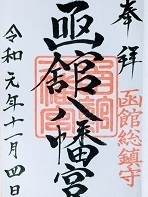 奉拝
函館総鎮守
函館八幡宮
令和元年十一月四日